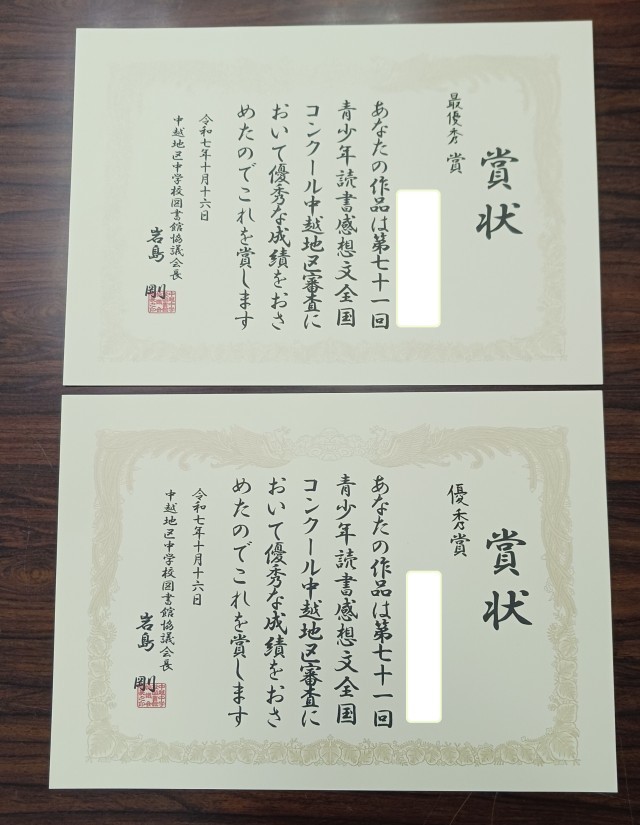 賞状
最優秀賞
あなたの作品は第七十一回
青少年読書感想文全国
コンクール中越地区審査に
おいて優秀な成績をおさ
めたのでこれを賞します
令和七年十月十六日
中越地区中学校図書館協議会長
岩島 剛
賞状
優秀賞
あなたの作品は第七十一回
青少年読書感想文全国
コンクール中越地区審査に
おいて優秀な成績をおさ
めたのでこれを賞します
令和七年十月十六日
中越地区中学校図書館協議会長
岩島 剛